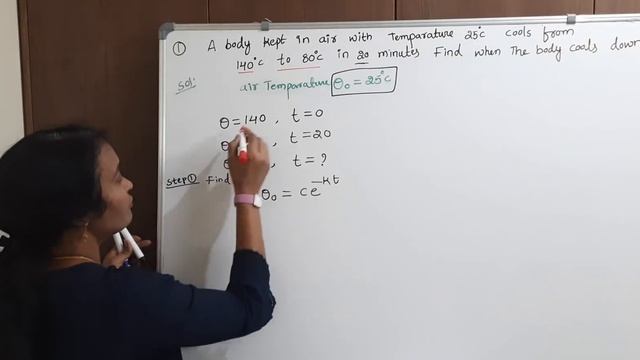 ① A body kept in air with Temparature 25°c cools from
140°c to 80°c in 20 minutes Find when The body cools down
Sol: air Temparature θ₀ = 25°c
θ = 140 , t = 0
θ , t = 20
, t = ?
Step① Find
θ₀ = ce^-kt